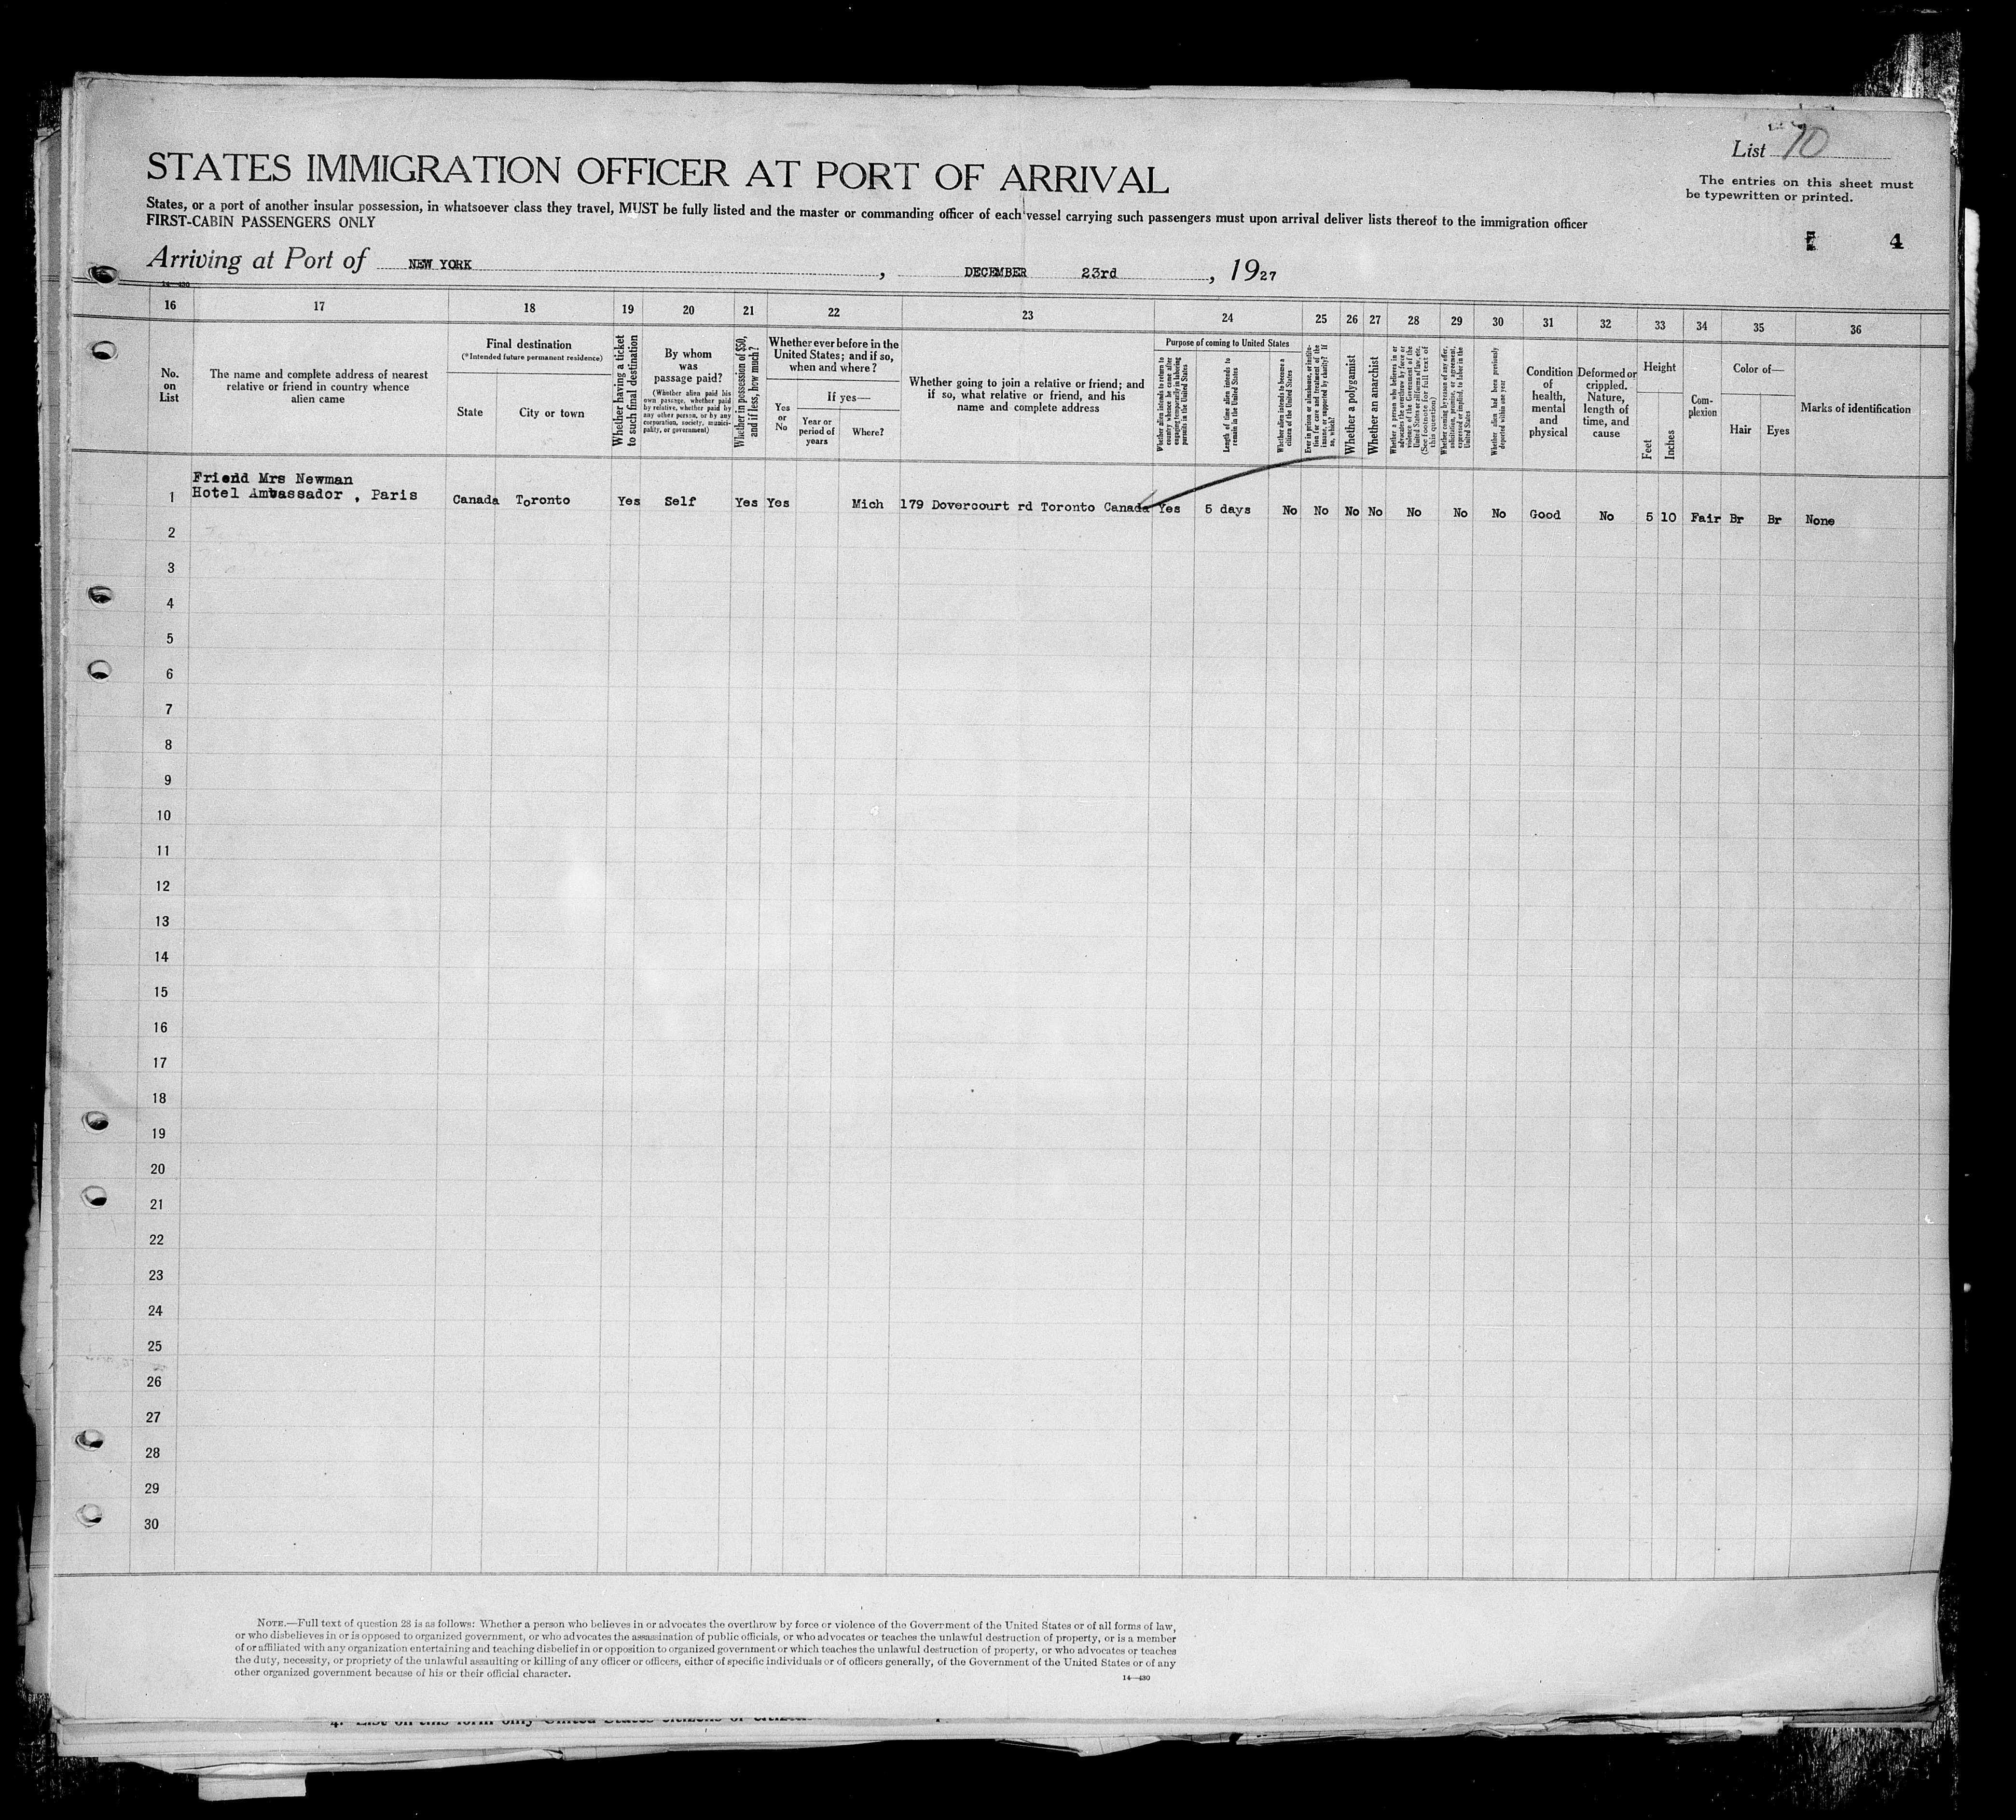 List 10
STATES IMMIGRATION OFFICER AT PORT OF ARRIVAL
The entries on this sheet must
be typewritten or printed.
States, or a port of another insular possession, in whatsoever class they travel, MUST be fully listed and the master or commanding officer of each vessel carrying such passengers must upon arrival deliver lists thereof to the immigration officer
FIRST-CABIN PASSENGERS ONLY
4
Arriving at Port of NEW YORK, DECEMBER 23rd, 1927
14—430
16 17 18 19 20 21 22 23 24 25 26 27 28 29 30 31 32 33 34 35 36
No.
on
List
The name and complete address of nearest
relative or friend in country whence
alien came
Final destination
(*Intended future permanent residence)
State
City or town
Whether having a ticket
to such final destination
By whom
was
passage paid?
(Whether alien paid his
own passage, whether paid
by relative, whether paid by
any other person, or by any
corporation, society, munici-
pality, or government)
Whether in possession of $50,
and if less, how much?
Whether ever before in the
United States; and if so,
when and where?
Yes
or
No
If yes—
Year or
period of
years
Where?
Whether going to join a relative or friend; and
if so, what relative or friend, and his
name and complete address
Purpose of coming to United States
Whether alien intends to return to
country whence he came after
engaging temporarily in laboring
pursuits in the United States
Length of time alien intends to
remain in the United States
Whether alien intends to become a
citizen of the United States
Ever in prison or almshouse, or institu-
tion for care and treatment of the
insane, or supported by charity? If
so, which?
Whether a polygamist
Whether an anarchist
Whether a person who believes in or
advocates the overthrow by force or
violence of the Government of the
United States or all forms of law, etc.
(See footnote for full text of
this question)
Whether coming by reason of any offer,
solicitation, promise, or agreement,
expressed or implied, to labor in the
United States
Whether alien had been previously
deported within one year
Condition
of
health,
mental
and
physical
Deformed or
crippled.
Nature,
length of
time, and
cause
Height
Feet
Inches
Com-
plexion
Color of—
Hair
Eyes
Marks of identification
Friend Mrs Newman
1 Hotel Ambassador , Paris Canada Toronto Yes Self Yes Yes Mich 179 Dovercourt rd Toronto Canada Yes 5 days No No No No No No No Good No 5 10 Fair Br Br None
2
3
4
5
6
7
8
9
10
11
12
13
14
15
16
17
18
19
20
21
22
23
24
25
26
27
28
29
30
NOTE.—Full text of question 28 is as follows: Whether a person who believes in or advocates the overthrow by force or violence of the Government of the United States or of all forms of law,
or who disbelieves in or is opposed to organized government, or who advocates the assassination of public officials, or who advocates or teaches the unlawful destruction of property, or is a member
of or affiliated with any organization entertaining and teaching disbelief in or opposition to organized government or which teaches the unlawful destruction of property, or who advocates or teaches
the duty, necessity, or propriety of the unlawful assaulting or killing of any officer or officers, either of specific individuals or of officers generally, of the Government of the United States or of any
other organized government because of his or their official character.
14—430
4. List on this form only United States citizens or